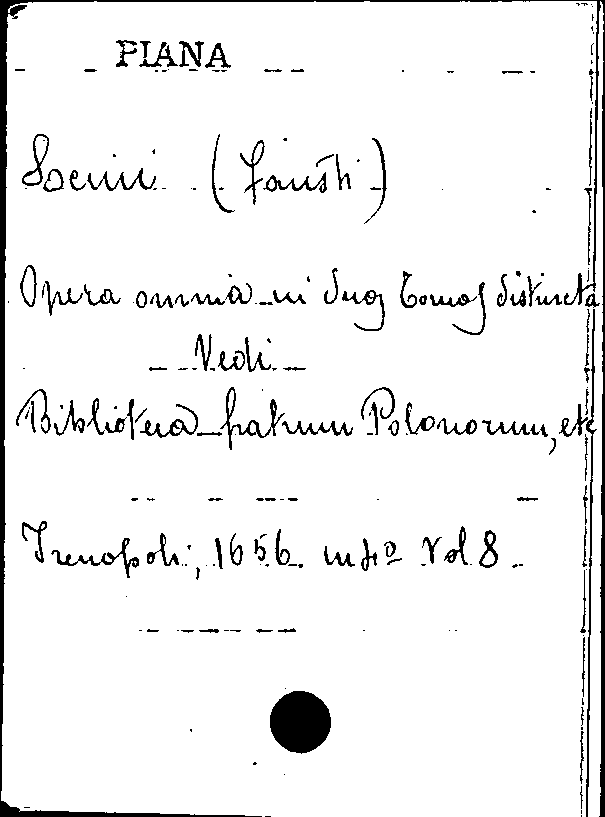 PIANA
Socini (Fausti)
Opera omnia in duos tomos distincta
Vedi
Biblioteca fratrum Polonorum, etc
Irenopoli, 1656. in 4º Vol 8